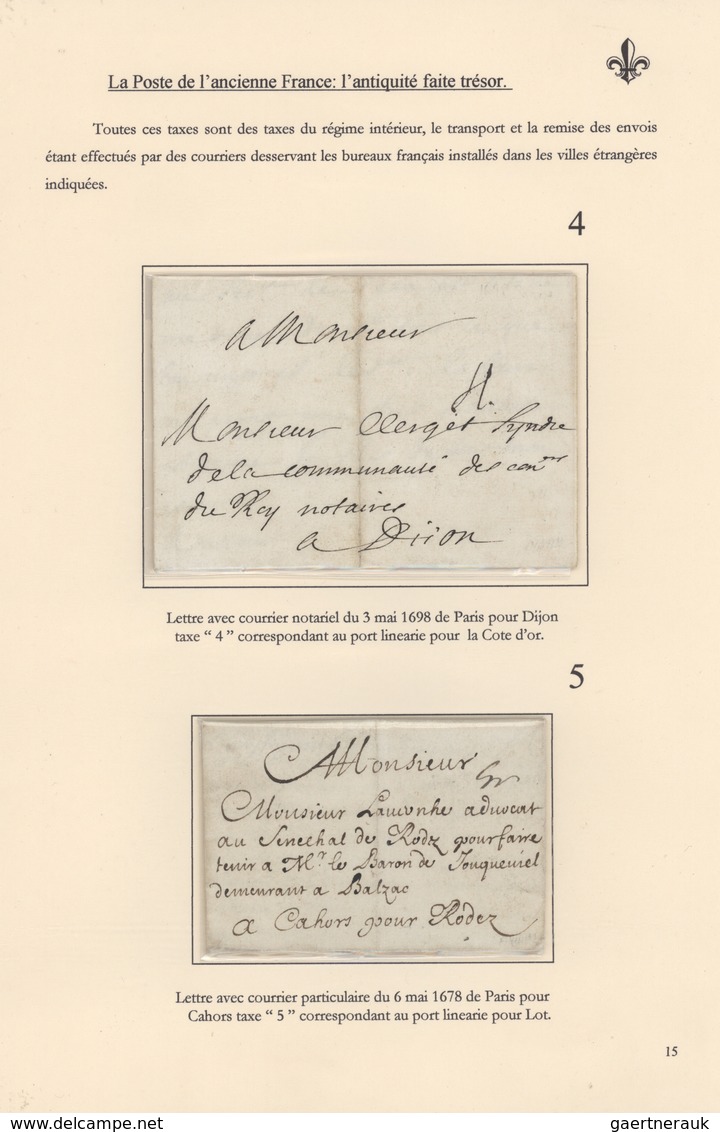 La Poste de l'ancienne France: l'antiquité faite trésor.
Toutes ces taxes sont des taxes du régime intérieur, le transport et la remise des envois
étant effectués par des courriers desservant les bureaux français installés dans les villes étrangères
indiquées.
4
a Monsieur
4.
Monsieur Clerget Syndic
de la communauté des con.ers
du Roy notaires
a Diion
Lettre avec courrier notariel du 3 mai 1698 de Paris pour Dijon
taxe " 4 " correspondant au port linearie pour la Cote d'or.
5
A Monsieur
Monsieur advocat
au Senechal de Rodez pour faire
tenir a Mr. le Baron de
demeurant a Balzac
a Cahors pour Rodez
Lettre avec courrier particulaire du 6 mai 1678 de Paris pour
Cahors taxe " 5 " correspondant au port linearie pour Lot.
15
gaertnerauk